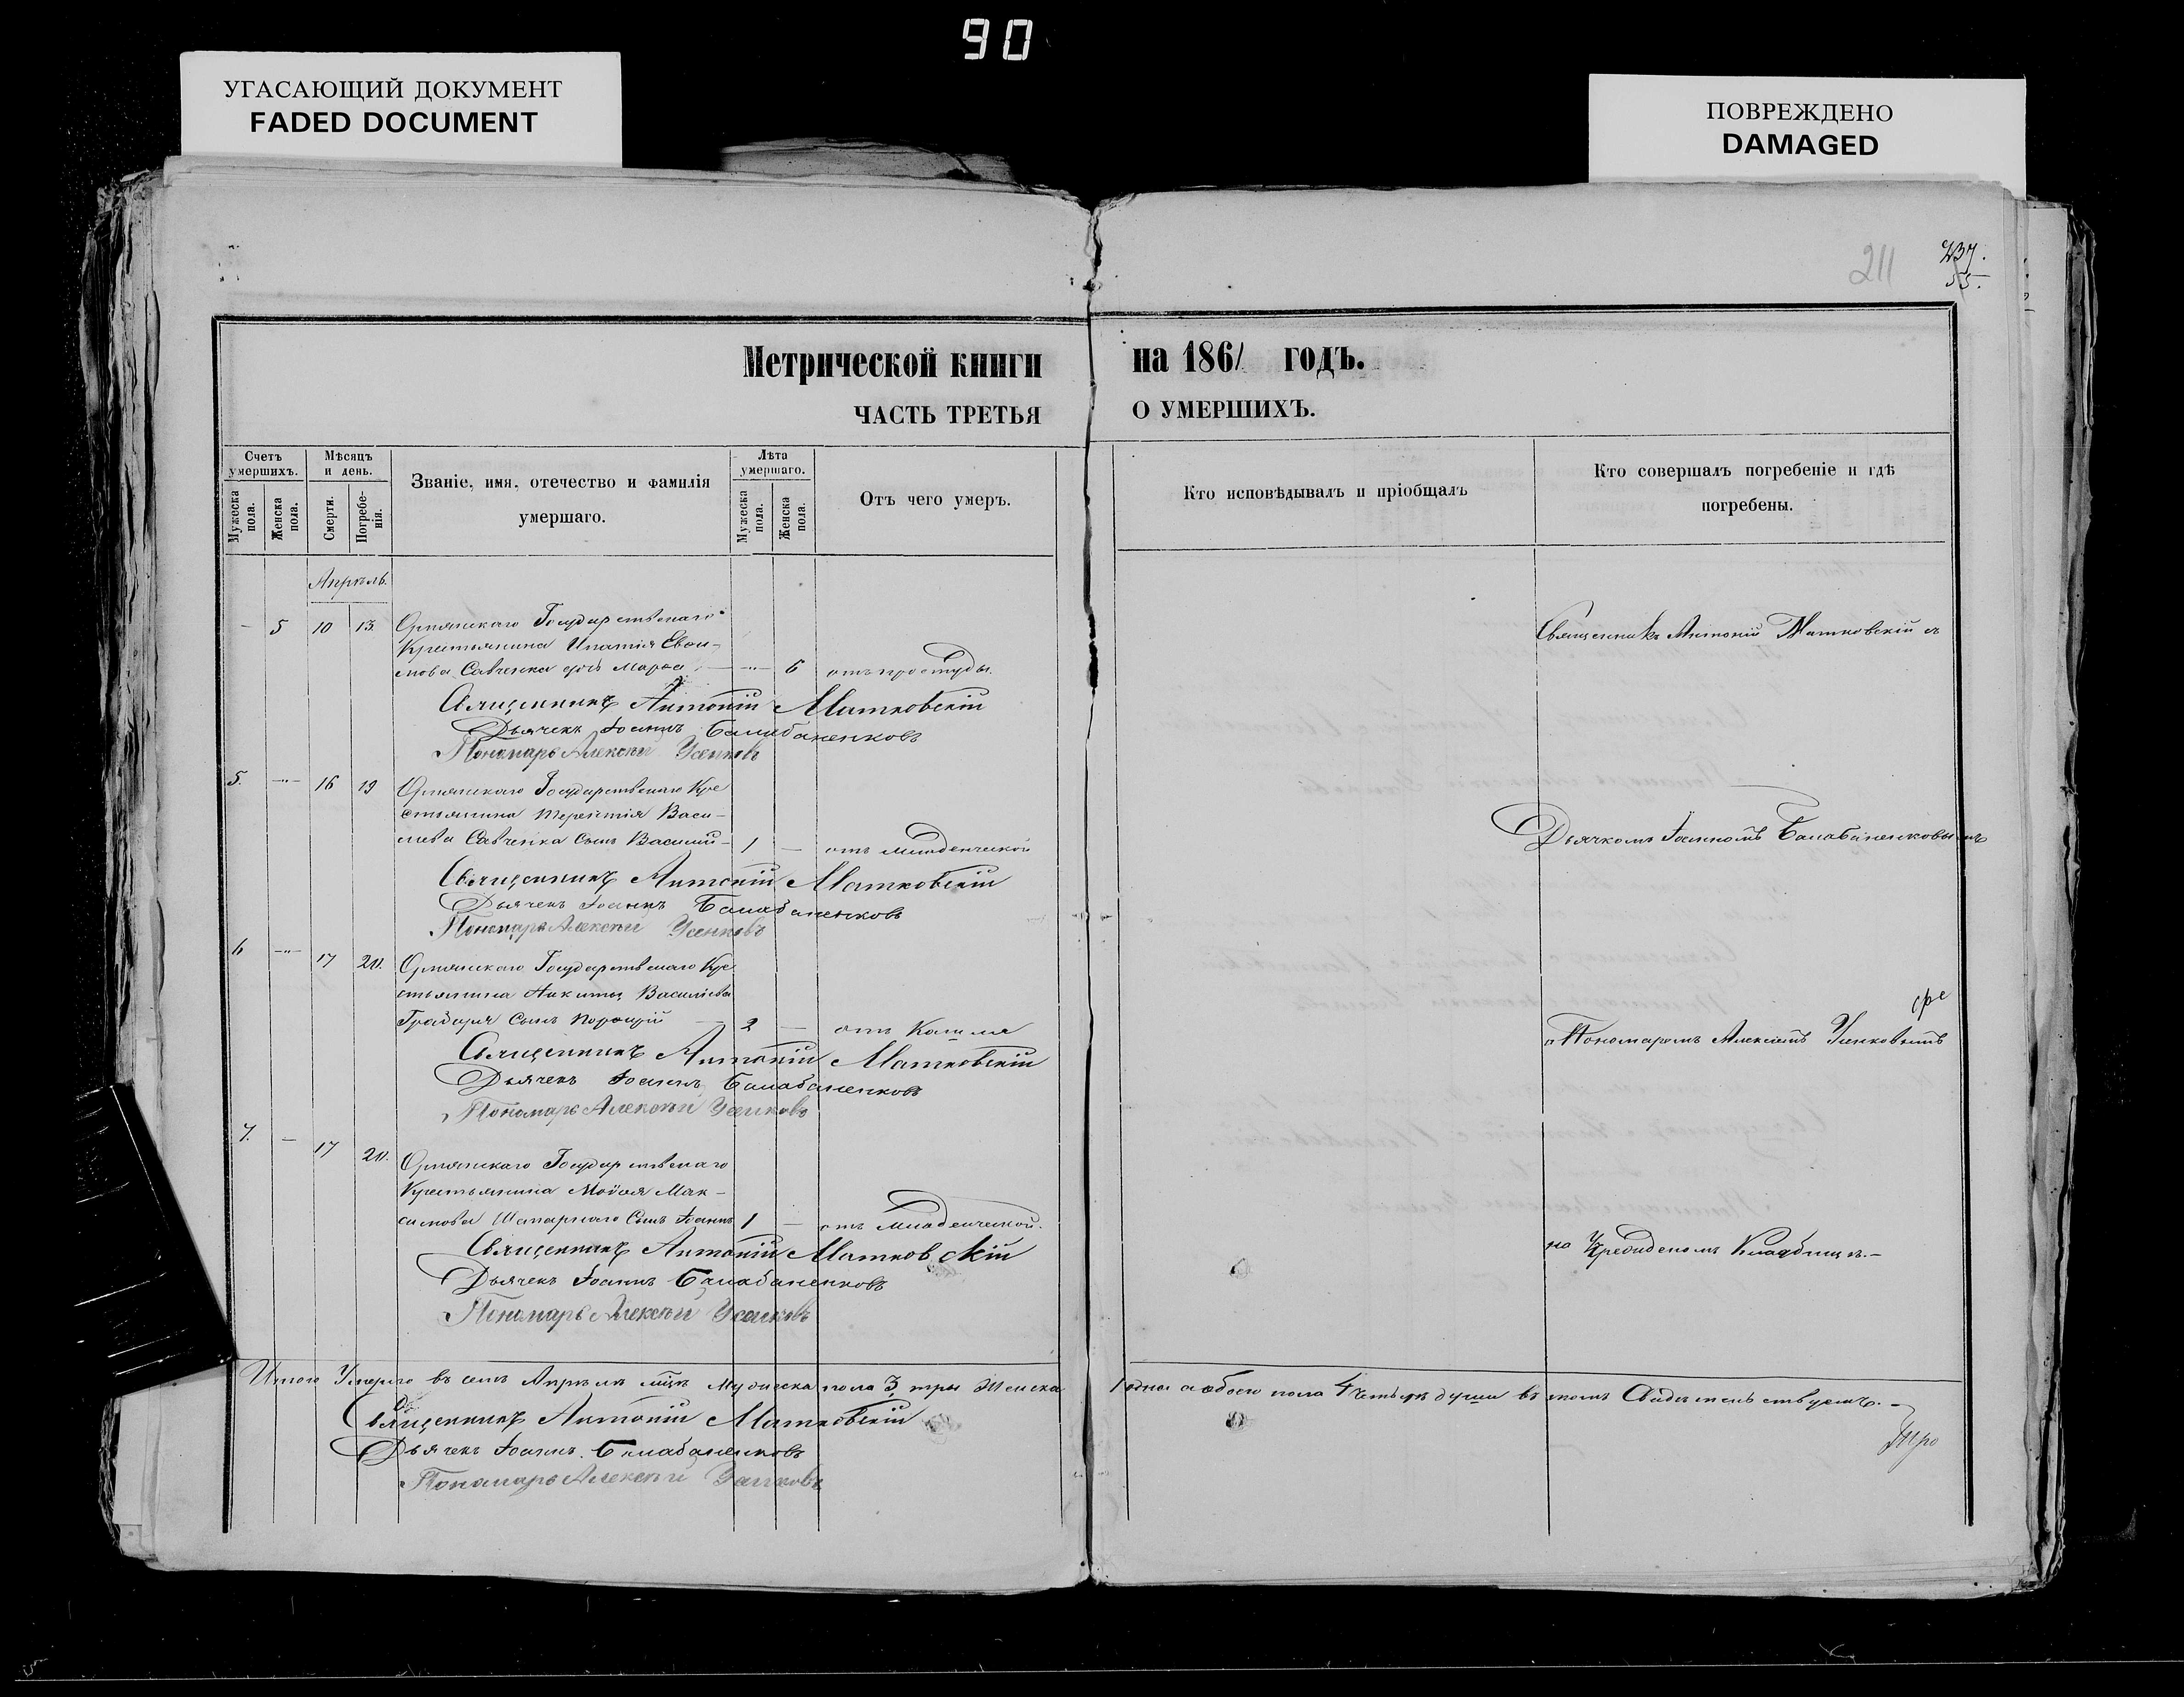 90
УГАСАЮЩИЙ ДОКУМЕНТ
FADED DOCUMENT
ПОВРЕЖДЕНО
DAMAGED
211
237.
55.
Метрической книги на 1861 годъ.
ЧАСТЬ ТРЕТЬЯ О УМЕРШИХЪ.
Счетъ умершихъ.
Мужеска пола.
Женска пола.
Мѣсяцъ и день.
Смерти.
Погребенія.
Званіе, имя, отечество и фамилія
умершаго.
Лѣта умершаго.
Мужеска пола.
Женска пола.
Отъ чего умеръ.
Кто исповѣдывалъ и пріобщалъ
Кто совершалъ погребеніе и гдѣ
погребены.
Апрѣль.
— 5 10 13. Государственаго
Крестьянина Ипатія Евѳи-
мова Савченка дочь Марѳа — 6 отъ простуды.
Священникъ Антоній Матковскій
Дьячекъ Іоаннъ Балабаненковъ
Пономарь Алексѣй Усенковъ
5. — 16 19 Государственаго Кре
стьянина Терентія Васи-
лиева Савченка сынъ Василий 1 — отъ младенческой
Священникъ Антоній Матковскій
Дьячекъ Іоаннъ Балабаненковъ
Пономарь Алексѣй Усенковъ
6 — 17 20. Государственаго Кре
стьянина Никиты Василіева
Грабаря сынъ — 2 — отъ Кашля
Священникъ Антоній Матковскій
Дьячекъ Іоаннъ Балабаненковъ
Пономарь Алексѣй Усенковъ
7. — 17 20. Государственаго
Крестьянина Мойсея Мак-
симова сынъ Іоаннъ 1 — отъ младенческой.
Священникъ Антоній Матковскій
Дьячекъ Іоаннъ Балабаненковъ
Пономарь Алексѣй Усенковъ
Священникъ Антоній Матковскій съ
Дьячкомъ Іоанномъ Балабаненковымъ
и Пономаремъ Алексіемъ Усенковымъ
на Учрежденомъ Кладбищѣ.—
Итого Умерло въ семъ Апрѣлѣ мцѣ Мужеска пола 3 три Женска 1 одна а обоего пола 4 четыре души въ томъ Свидѣтельствуемъ.—
Священникъ Антоній Матковскій
Дьячекъ Іоаннъ Балабаненковъ
Пономарь Алексѣй Усенковъ